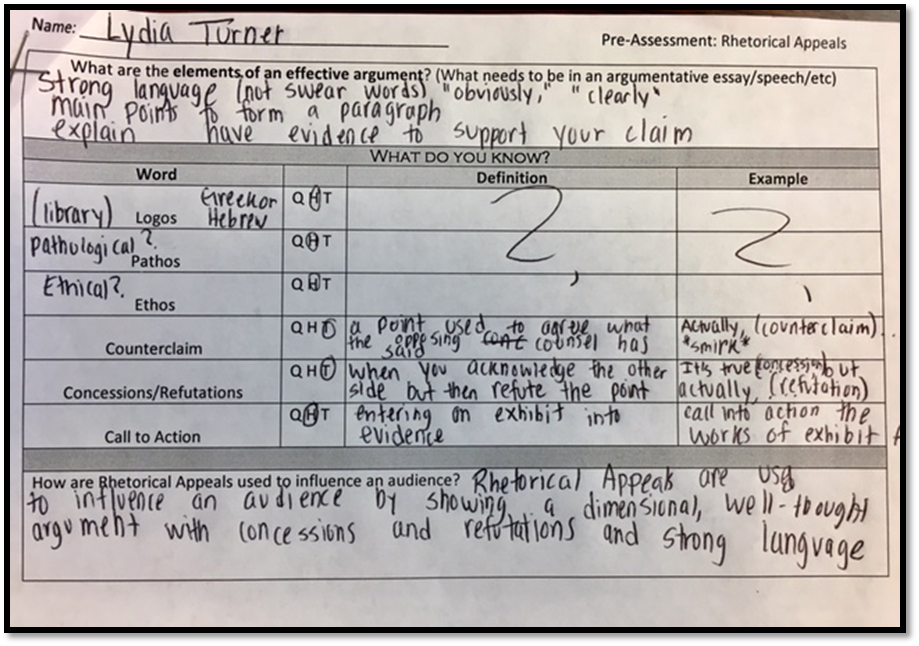 Name: Lydia Turner
Pre-Assessment: Rhetorical Appeals
What are the elements of an effective argument? (What needs to be in an argumentative essay/speech/etc)
Strong language (not swear words) "obviously," "clearly"
main points to form a paragraph
explain have evidence to support your claim
WHAT DO YOU KNOW?
Word Definition Example
(library) Logos Greek or Hebrew Q H T ?
Pathological? Pathos Q H T
Ethical? Ethos Q H T
Counterclaim Q H T a point used to agrue what the opposing counsel has said Actually, (counterclaim). *smirk*
Concessions/Refutations Q H T When you acknowledge the other side but then refute the point It's true (concession) but actually, (refutation)
Call to Action Q H T entering an exhibit into evidence call into action the works of exhibit A
How are Rhetorical Appeals used to influence an audience? Rhetorical Appeals are used
to influence an audience by showing a dimensional, well-thought
argument with concessions and refutations and strong language